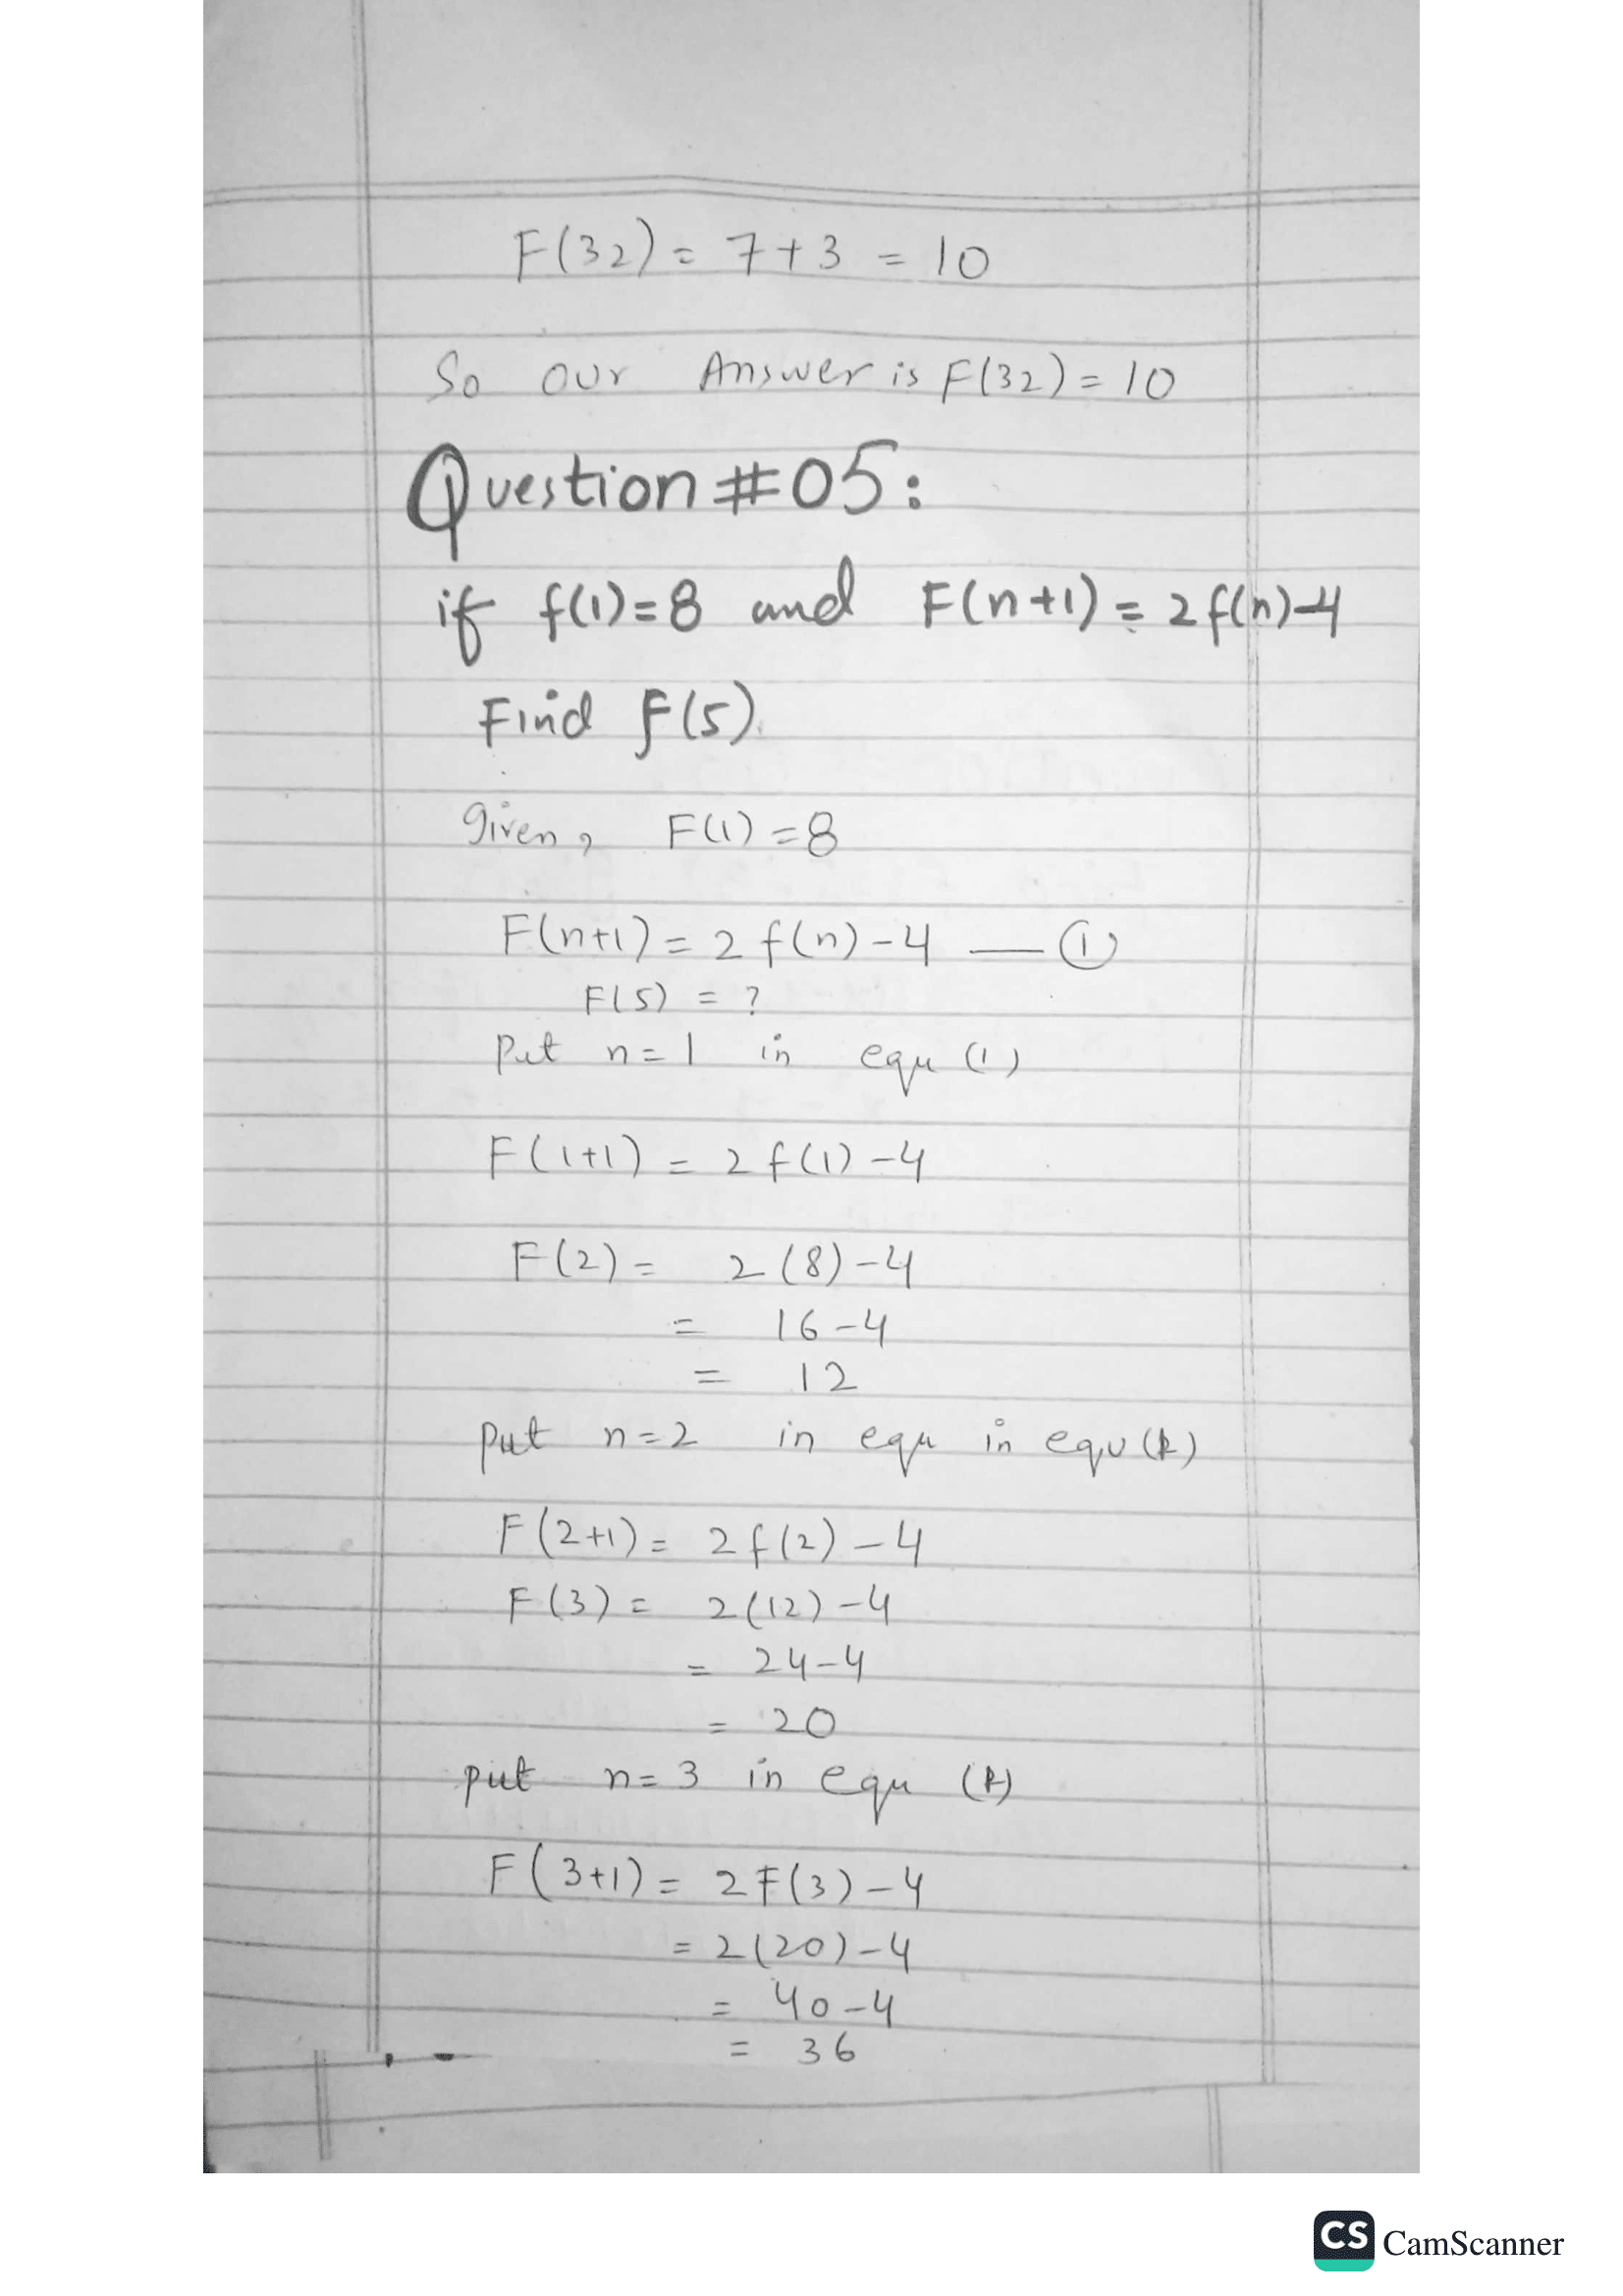 F(32) = 7+3 = 10
So our Answer is F(32) = 10
Question #05:
if f(1)=8 and F(n+1) = 2f(n)-4
Find F(5).
Given, F(1) = 8
F(n+1) = 2 f(n) - 4 — ①
F(5) = ?
Put n=1 in equ (1)
F(1+1) = 2 f(1) - 4
F(2) = 2(8) - 4
= 16-4
= 12
put n=2 in equ in equ
F(2+1) = 2f(2) - 4
F(3) = 2(12) - 4
= 24-4
= 20
put n=3 in equ
F(3+1) = 2F(3) - 4
= 2(20) - 4
= 40-4
= 36
CS CamScanner